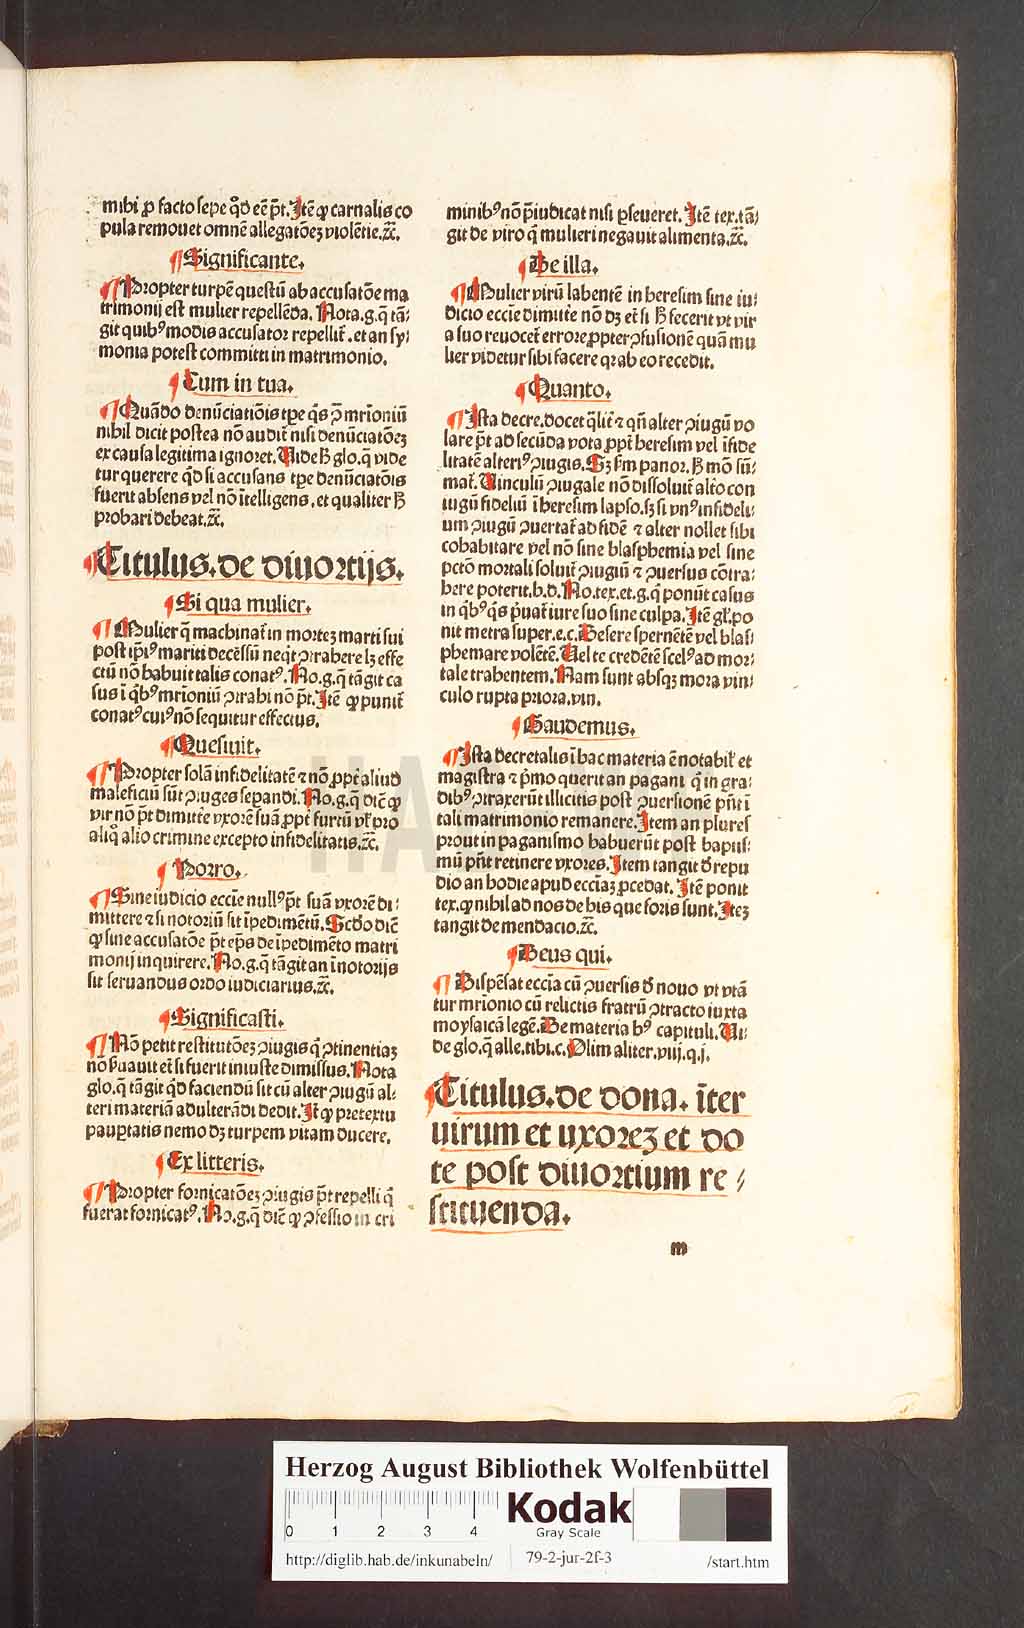 mihi ꝓ facto sepe qd̄ eē p̄t. Itē ꝙ carnalis co
pula remouet omnē allegatōeꝫ violētie.ꝛc̄.
¶ Significante.
¶ Propter turpē questū ab accusatōe ma
trimonij est mulier repellēda. Nota.g.q̄ tā⸗
git quibꝰ modis accusator repellit̄. et an sy⸗
monia potest committi in matrimonio.
¶ Cum in tua.
¶ Quādo denūciatiōis tp̄e q̄s ꝯ̄ mr̄ioniū
nihil dicit postea nō audit̄ nisi denūciatōeꝫ
ex causa legitima ignoret. Uide ħ glo.q̄ vide
tur querere qd̄ si accusans tp̄e denūciatōis
fuerit absens vel nō ītelligens, et qualiter ħ
probari debeat.ꝛc̄.
¶ Titulus. de diuortijs.
¶ Si qua mulier.
¶ Mulier q̄ machinat̄ in morteꝫ mariti sui
post ip̄iꝰ mariti decēssū neq̄t ꝯtrahere lꝫ effe
ctū nō habuit talis conatꝰ. No.g.q̄ tāgit ca
sus ī q̄bꝰ mr̄ioniū ꝯtrahi nō p̄t. Itē ꝙ punit̄
conatꝰ cuiꝰ nō sequitur effectus.
¶ Quesiuit.
¶ Propter solā infidelitatē ⁊ nō ꝓpt̄ aliud
maleficiū sūt ꝯiuges sepandi. No.g.q̄ dic̄ ꝙ
vir nō p̄t dimitte vxorē suā ꝓpt̄ furtū vl̄ pro
aliq̄ alio crimine excepto infidelitatis.ꝛc̄.
¶ Porro.
¶ Sine iudicio eccīe nullꝰ p̄t suā vxorē di⸗
mittere ⁊ si notoriū sit īpedimētū. Scd̄o dic̄
ꝙ sine accusatōe p̄t ep̄s de īpedimēto matri
monij inquirere. No.g.q̄ tāgit an ī notorijs
sit seruandus ordo iudiciarius.ꝛc̄.
¶ Significasti.
¶ Nō petit restitutōeꝫ ꝯiugis q̄ ꝯtinentiaꝫ
nō ẜuauit et̄ si fuerit iniuste dimissus. Nota
glo.q̄ tāgit qd̄ faciendū sit cū alter ꝯiugū al⸗
teri materiā adulterādi dedit. It̄ ꝙ pretextu
paupertatis nemo dꝫ turpem vitam ducere.
¶ Ex litteris.
¶ Propter fornicatōeꝫ ꝯiugis p̄t repelli q̄
fuerat fornicatꝰ. No.g.q̄ dic̄ ꝙ ꝯfessio in cri
minibꝰ nō p̄iudicat nisi ꝑseueret. Itē tex.tā⸗
git de viro q̄ mulieri negauit alimenta.ꝛc̄.
¶ De illa.
¶ Mulier virū labentē in heresim sine iu⸗
dicio eccīe dimitte nō dꝫ et̄ si ħ fecerit vt vir
a suo reuocet̄ errore ꝓpter ꝯfusionē quā mu
lier videtur sibi facere qꝛ ab eo recedit.
¶ Quanto.
¶ Ista decre.docet q̄lit̄ ⁊ qn̄ alter ꝯiugū vo
lare p̄t ad secūda vota ꝓpt̄ heresim vel īfide
litatē alteriꝰ ꝯiugis. Sꝫ ẜm panor. ħ mō sū⸗
mat̄. Uinculū ꝯiugale nō dissoluit̄ alt̄o con
iugū fideliū ī heresim lapso.sꝫ si vnꝰ infideli⸗
um ꝯiugū ꝯuertat̄ ad fidē ⁊ alter nollet sibi
cohabitare vel nō sine blasphemia vel sine
pctō mortali soluit̄ ꝯiugiū ⁊ ꝯuersus cōtra⸗
here poterit.h.d. No.tex.et.g.q̄ ponūt casus
in q̄bꝰ q̄s p̄uat̄ iure suo sine culpa. Itē gl̄.po
nit metra super.e.c. Desere spernētē vel blas⸗
phemare volētē. Uel te credētē scelꝰ ad mor⸗
tale trahentem. Nam sunt absqꝫ mora vin⸗
culo rupta priora.vin.
¶ Gaudemus.
¶ Ista decretalis ī hac materia ē notabil̄ et
magistra ⁊ p̄mo querit an pagani q̄ in gra⸗
dibꝰ ꝯtraxerūt illicitis post ꝯuersionē pn̄t ī
tali matrimonio remanere. Item an plures
prout in paganismo habuerūt post baptis⸗
mū pn̄t retinere vxores. Item tangit d̄ repu
dio an hodie apud eccīaꝫ ꝓcedat. Itē ponit
tex.ꝙ nihil ad nos de his que foris sunt. Iteꝫ
tangit de mendacio.ꝛc̄.
¶ Deus qui.
¶ Dispēsat eccīa cū ꝯuersis d̄ nouo vt vtā
tur mr̄ionio cū relictis fratrū ꝯtracto iuxta
moysaicā legē. De materia hꝰ capituli. Ui⸗
de glo.q̄ alle.tibi.c. Olim aliter.viij.q.j.
¶ Titulus. de dona. īter
uirum et uxoreꝫ et do
te post diuortium re⸗
stituenda.
m
HAB
Herzog August Bibliothek Wolfenbüttel
0 1 2 3 4
Kodak
Gray Scale
http://diglib.hab.de/inkunabeln/ 79-2-jur-2f-3 /start.htm